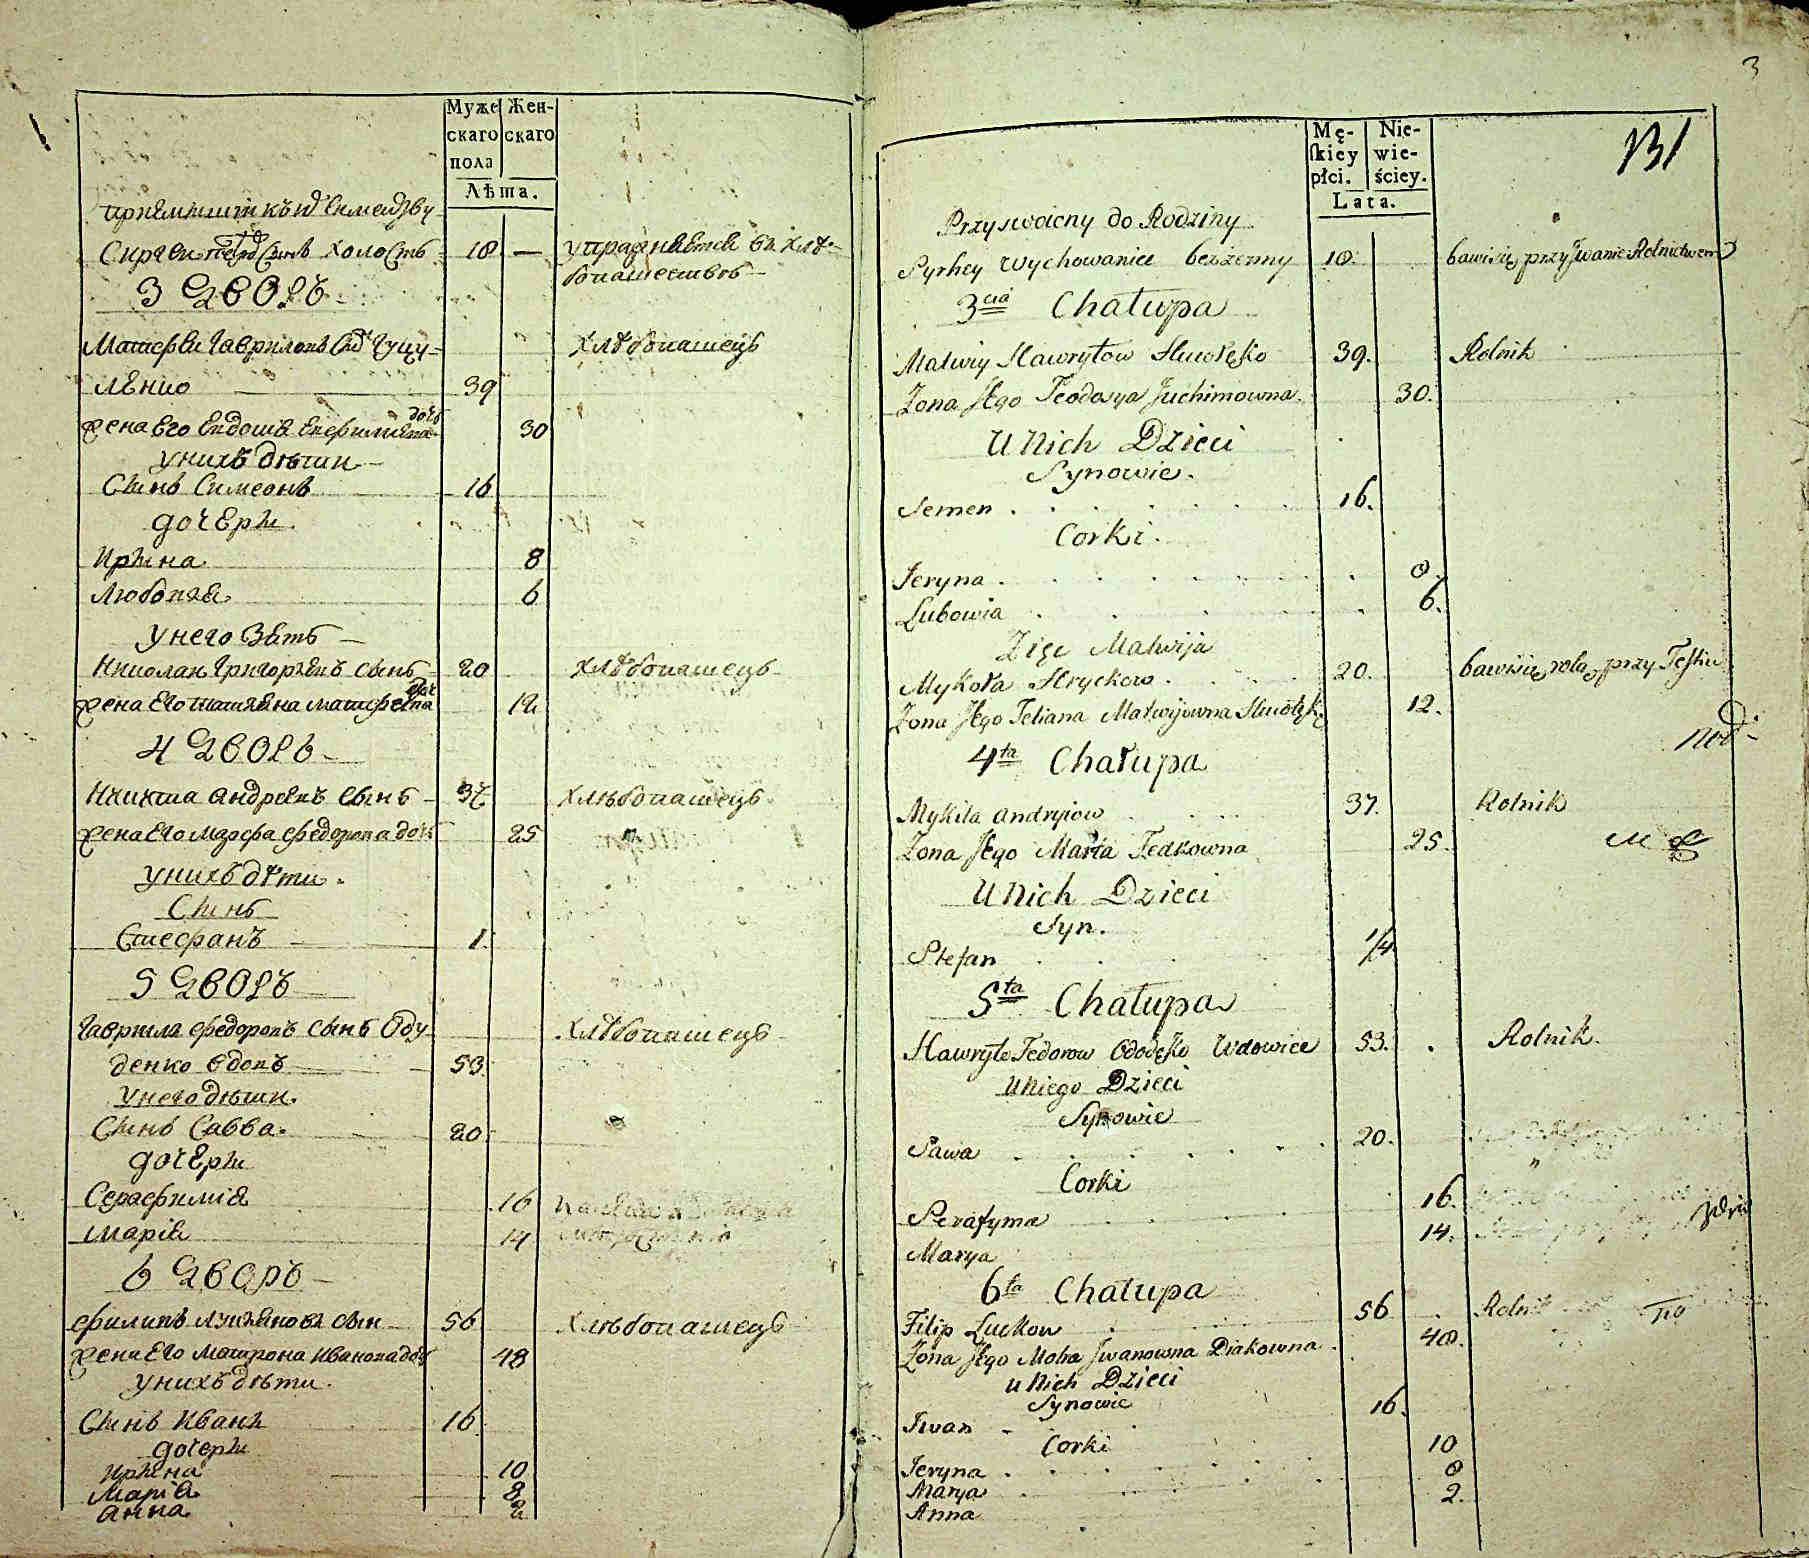 Муже Жен-
скаго скаго
пола
Лѣта.
Сынъ холостъ 18 — упражняется въ хлѣ-
бопашествѣ
3 дворъ
Матфей Гавриловъ сынъ Гуцу- хлѣбопашецъ
ленко 39
жена Его Евдокія Евфиміева дочь 30
унихъ дѣти
Сынъ Симеонъ 16
дочери
Ирина 8
Любовія 6
унего Зять
Николай Григорьевъ сынъ 20 хлѣбопашецъ
жена Его татіана матфеева доч 12
4 дворъ
Никита андреевъ сынъ 37 хлѣбопашецъ
жена Его марфа федорова доч 25
унихъ дѣти
Сынъ
Стефанъ 1
5 дворъ
Гаврила федоровъ сынъ Оду- хлѣбопашецъ
денко вдовъ 53
унего дѣти
Сынъ Савва 20
дочери
Серафимія 16
марія 14
6 дворъ
филипъ лукьяновъ сын 56 хлѣбопашецъ
жена Его матрона иванова доч 48
унихъ дѣти
Сынъ иванъ 16
дочери
ирина 10
марія 8
анна 2
3
131
Mę- Nie-
skiey wie-
płci. ściey.
Lata.
Przyswoiony do Rodziny
Syrhey Wychowaniec bezżenny 18. bawi się przy Rolnictwem
3cia Chałupa
Matwiy Hawryłow 39. Rolnik
Zona Jego Teodosya Juchimowna 30.
U Nich Dzieci
Synowie.
Semen 16.
Corki.
Jeryna 8.
Lubowia 6.
Zięć Matwija
Mykoła Hryckow 20. bawi się rolą przy Teściu
Zona Jego Tetiana Matwijowna 12.
4ta Chałupa
Mykita andryiow 37. Rolnik
Zona Jego Maria Fedkowna 25.
U Nich Dzieci
Syn.
Stefan 1/4
5ta Chałupa
Hawryło Fedorow Wdowiec 53. Rolnik.
U Niego Dzieci
Synowie
Sawa 20.
Corki
Serafyma 16.
Marya 14.
6ta Chałupa
Filip Luckow 56
Zona Jego Motra Jwanowna Diakowna 48.
U Nich Dzieci
Synowie
Jwan 16.
Corki
Jeryna 10
Marya 8
Anna 2.